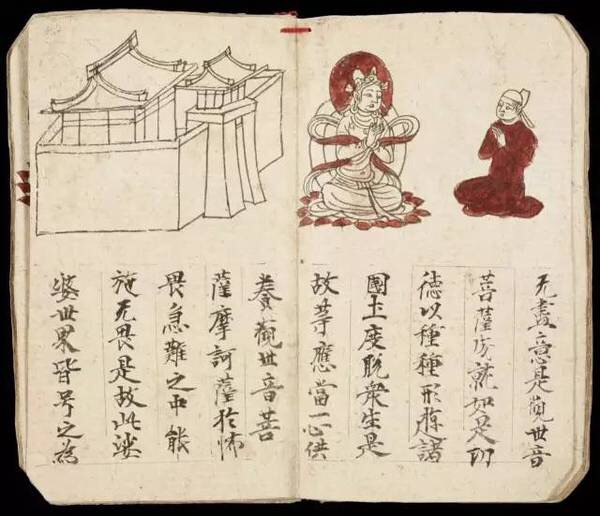 无盡意是觀世音
菩薩成就如是功
德以種種形遊諸
國土度脫衆生是
故等應當一心供
養觀世音菩
薩摩訶薩於怖
畏急難之中能
施无畏是故此娑
婆世界皆号之為